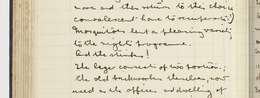 more and then return to the choice
convalescent have to
Mosquitoes lent a pleasing variety
to the night programme.
And the stinks!
The lager consist of two portions:
the old themselves, now
used as the offices and dwelling of